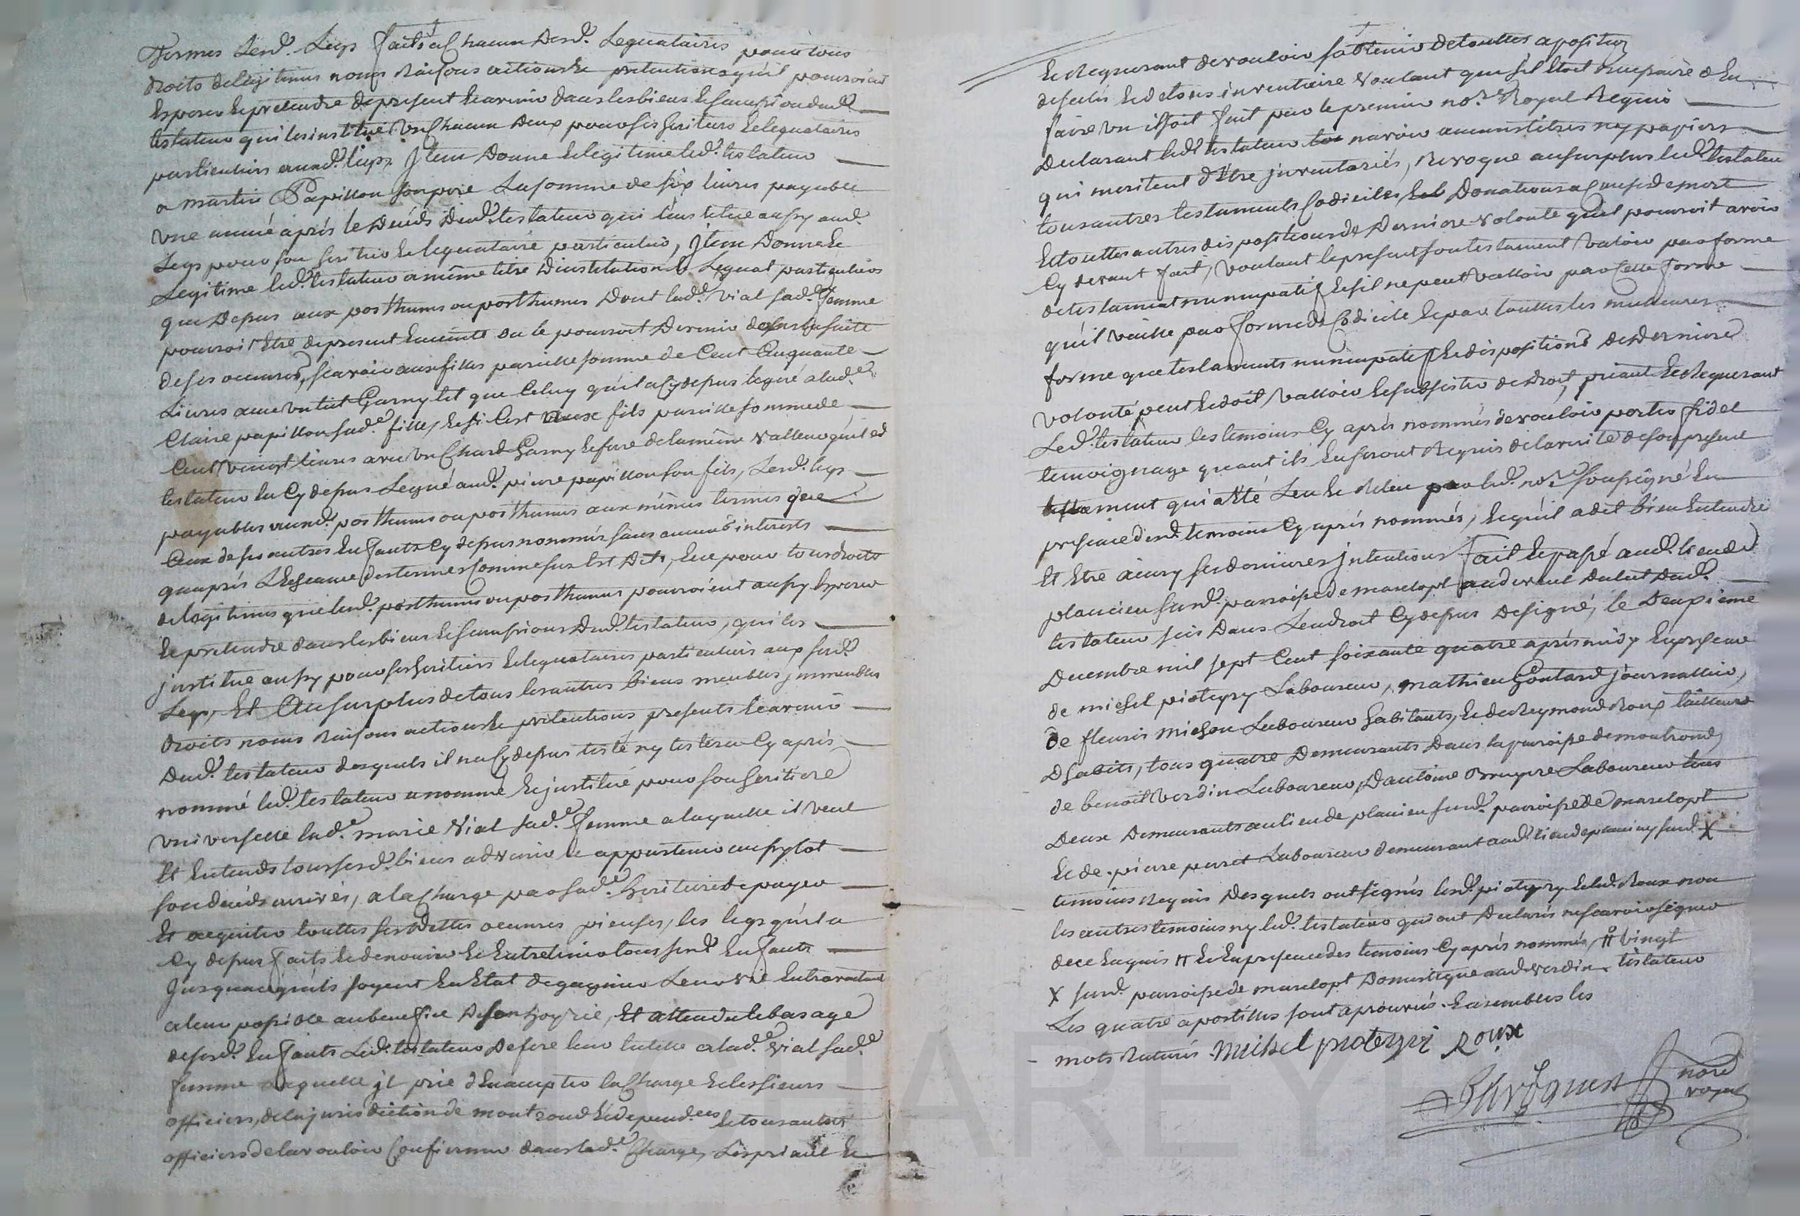 Termes lesd. Legs faits a Chacun desd. Legataires pour tous
droits de legitimes noms Raisons actions Et pretentions qu'il pouroient
Esperer Et pretendre de present Et avenir dans les biens Et succession dud.
testateur qui les institue Un Chacun deux pour ses heritiers Et legataires
particuliers auxd. legs, Jtem Donne Et legitime led. testateur
a martin Papillon son pere La somme de six livres payable
Une année aprés le Decés Dud. testateur qui l'institue aussy aud.
Legs pour son heritier Et legataire particulier, Jtem Donne Et
Legitime led. testateur a même titre D'institution Et Legat particuliers
que Depus aux posthumes ou posthumes Dont lad. Vial sad. femme
pouroit Etre de present Enceinte ou le pouroit Devenir de
de ses oeuvres, scavoir aux filles pareille somme de Cent Cinquante
Livres avec un tel Garny tel que Celuy qu'il a Cy depus legué a lad.
Claire papillon sad. fille, Et si C'est aux fils pareille somme de
Cent vingt livres avec un Chard Garny Et ferré de la même valleur qu'led
testateur la Cy depus Legué aud. pierre papillon son fils, Lesd. legs
payables auxd. posthumes ou posthumes aux mêmes termes que
Ceux de ses autres Enfants Cy depus nommés sans aucuns interests
qu'aprés L'Echeance des termes Comme sus Est Dit, Et ce pour tous droits
de legitimes que led. posthumes ou posthumes pouroient aussy Esperer
Et pretendre dans les biens Et successions Dud. testateur, qui les
justitue aussy pour ses heritiers Et legataires particuliers aux susd.
Legs, Et Au surplus de tous les autres biens meubles jmmeubles
Droits noms Raisons actions Et pretentions presents Et avenir
Dud. testateur desquels il n'a Cy depus testé ny testera Cy aprés
nommé led. testateur a nommé Et justitué pour son heritiere
Universelle lad. marie Vial sad. femme a laquelle il veut
Et Entends tous sesd. biens advenir Et appartenir aussytot
son decéds arrivés, a la Charge par sad. heritiere de payer
Et acquitter toutes ses dettes oeuvres pieuses, les legs qu'il a
Cy depus faits Et de nourir Et Entretenir tous sesd. Enfants
Jusqu'a ce qu'ils soyent En Etat de gagner Leur vie En travaillant
a leur possible au benefice de son hoyrie, Et attendu le bas age
de sesd. Enfants Led. testateur Defere leur tutelle a lad. Vial sad.
femme laquelle jl prie d'En accepter la Charge Et les sieurs
officiers de la jurisdiction de montrond Et dependces Et tous autres
officiers de la vouloir Confirmer dans lad. Charge, Les priant Et
Et Requerant de vouloir s'abstenir de touttes aposition
de scelés Et de tous inventaire Voulant que s'il Etoit necessaire d'En
faire un il soit fait par le premier nore Royal Requis
Declarant led. testateur n'avoir aucuns titres ny papiers
qui meritent d'être jnventariés, Revoque au surplus led. testateur
tous autres testaments Codiciles, Et Donations a Cause de mort
Et touttes autres dispositions de Derniere volonté qu'il pouroit avoir
Cy devant fait, Voulant le present son testament Valoir par forme
de testament nuncupatif Et s'il ne peut Valloir par Cette forme
qu'il vaille par forme de Codicile Et par touttes les meilleures
forme que testaments nuncupatif Et dispositions de Derniere
volonté peut Et doit Valloir Et subsister de Droit, priant Et Requerant
Led. testateur les temoins Cy aprés nommés de vouloir porter fidel
temoignage quant ils En seront Requis de la verité de son present
testament qui a été Leu Et Releu par led. nore soussigné En
presence desd. temoins Cy aprés nommés, Et qu'il a dit bien Entendre
Et Etre ainsy ses dernieres jntentions, Fait Et passé aud. lieu de
plancieu susd. parroisse de marclopt au devent Dulit Dud.
testateur sis Dans Lendroit Cy depus Designé, le Deuxieme
Decembre mil sept Cent soixante quatre aprés midy En presence
de michel pioteyry Laboureur, mathieu Goutard journallier,
De fleuris michon Laboureur habitants, Et de Reymond Roux tailleur
D'habits, tous quatre Demeurants Dans la parroisse de montrond,
de benoit verdin Laboureur, D'antoine Bruyere Laboureur tous
Deux Demeurants au lieu de plancieu susd. parroisse de marclopt
Et de pierre peuret Laboureur demeurant aud. lieu de plancieu susd. X
temoins Requis Desquels ont signés lesd. pioteyry Et led. Roux non
les autres temoins ny led. testateur qui ont Declarés ne scavoir signer
de ce Enquis # Et En presence des temoins Cy aprés nommés, # vingt
X susd. parroisse de marclopt Domestique aud. verdin. testateur
Les quatre apostilles sont aprouvés. Et a rembler les
mots Raturés. Michel pioteyri Roux
nore
royal